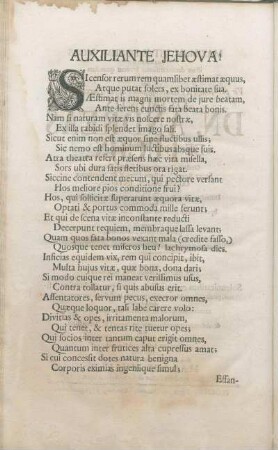 AUXILIANTE JEHOVA!
SIcensor rerum rem quamlibet æstimat æquus,
Atque putat solers, ex bonitate sua.
Æstimat is magni mortem de jure beatam,
Ante ferens cunctis fata beata bonis.
Nam si naturam vitæ vis noscere nostræ,
Ex illa rabidi splendet imago sali.
Sicut enim non est æquor sine fluctibus ullis;
Sic nemo est hominum luctibus absque suis.
Atra theatra refert præsens hæc vita misella,
Sors ubi dura satis fletibus ora rigat.
Siccine contendent mecum, qui pectore versant
Hos meliore pios conditione frui?
Hos, qui sollicitæ superarunt æquora vitæ,
Optati & portus commoda mille ferunt;
Et qui de scena vitæ inconstante reducti
Decerpunt requiem, membraque lassa levant;
Quam quos fata bonos vexant mala (credite fasso,)
Quosque tenet miseros heu! lachrymosa dies.
Inficias equidem vix, rem qui concipit, ibit,
Multa hujus vitæ, quæ bona, dona dari;
Si modo cuique rei maneat verissimus usus,
Contra tollatur, si quis abusus erit.
Assentatores, servum pecus, execror omnes,
Quæque loquor, tali labe carere volo:
Divitias & opes, irritamenta malorum,
Qui tenet, & tentas rite tuetur opes;
Qui socios inter tantum caput erigit omnes,
Quantum inter frutices alta cupressus amat;
Si cui concessit dotes natura benigna
Corporis eximias ingeniique simul;
Effan-